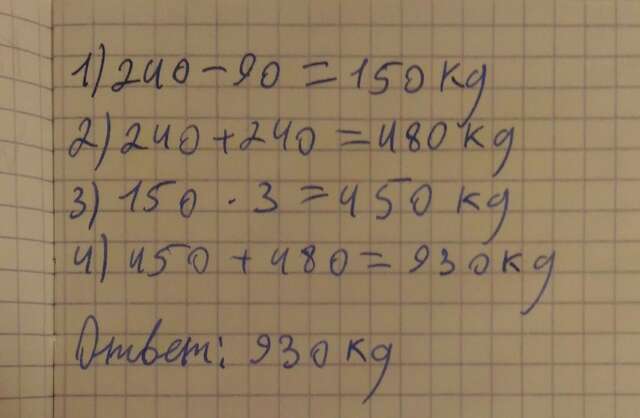 1) 240 - 90 = 150 kg
2) 240 + 240 = 480 kg
3) 150 · 3 = 450 kg
4) 450 + 480 = 930 kg
Ответ: 930 kg